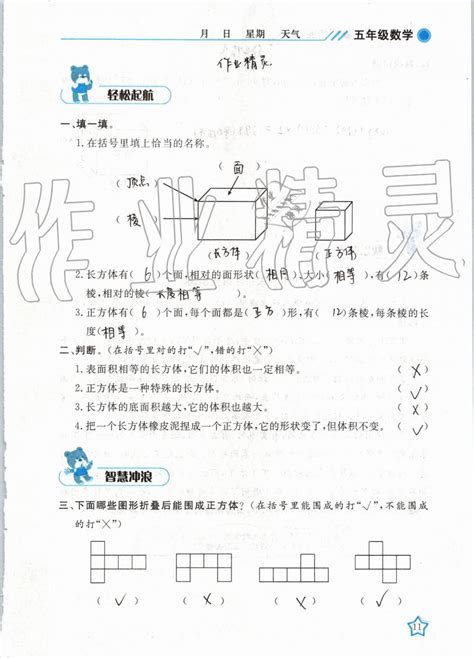 月 日 星期 天气 五年级数学
作业精灵
轻松起航
一、填一填。
1.在括号里填上恰当的名称。
(面)
(顶点)
(棱)
(长方体) (正方体)
2.长方体有(6)个面,相对的面形状(相同),大小(相等),有(12)条
棱,相对的棱(长度相等)。
3.正方体有(6)个面,每个面都是(正方)形,有(12)条棱,每条棱的长
度(相等)。
二、判断。(在括号里对的打“√”,错的打“×”)
1.表面积相等的长方体,它们的体积也一定相等。 (×)
2.正方体是一种特殊的长方体。 (√)
3.长方体的底面积越大,它的体积越大。 (×)
4.把一个长方体橡皮泥捏成一个正方体,它的形状变了,但体积不变。 (√)
智慧冲浪
三、下面哪些图形折叠后能围成正方体?(在括号里能围成的打“√”,不能围成
的打“×”)
(√) (×) (√) (√)
11
作业精灵